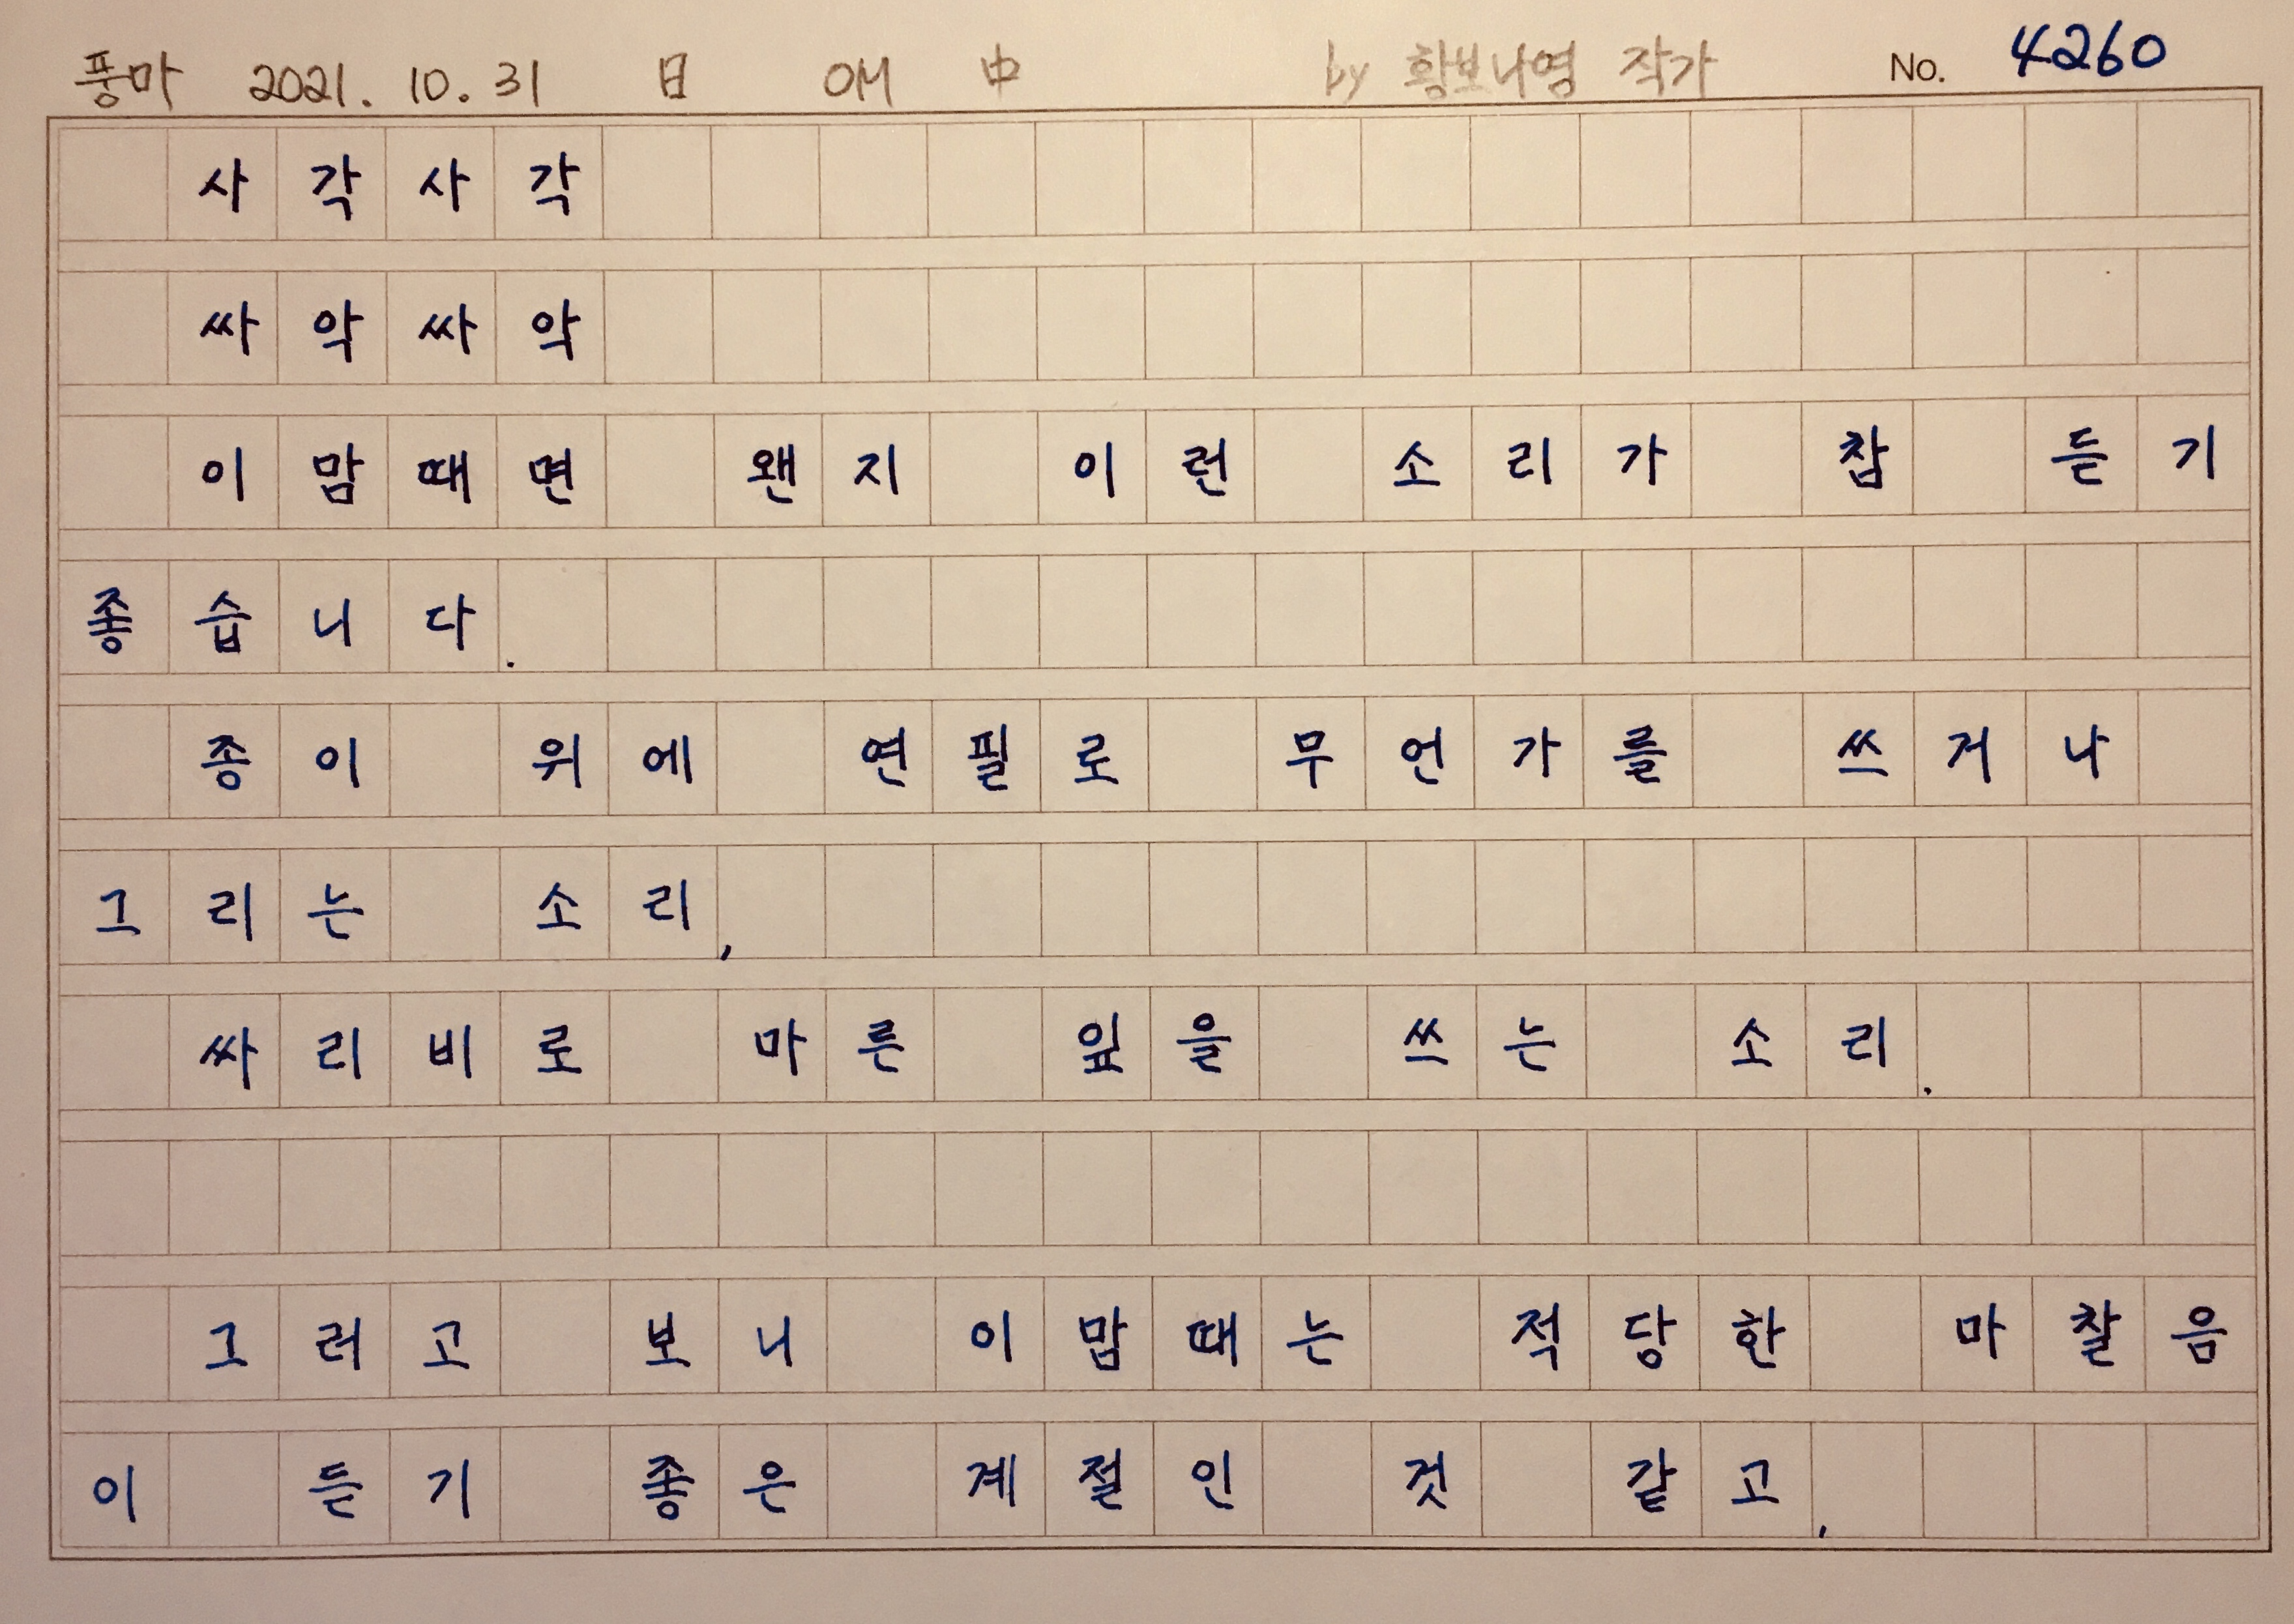 풍마 2021. 10. 31 日 OH 中 by 황보나영 작가 No. 4260
사각사각
싸악싸악
이맘때면 왠지 이런 소리가 참 듣기
좋습니다.
종이 위에 연필로 무언가를 쓰거나
그리는 소리,
싸리비로 마른 잎을 쓰는 소리.
그러고 보니 이맘때는 적당한 마찰음
이 듣기 좋은 계절인 것 같고,